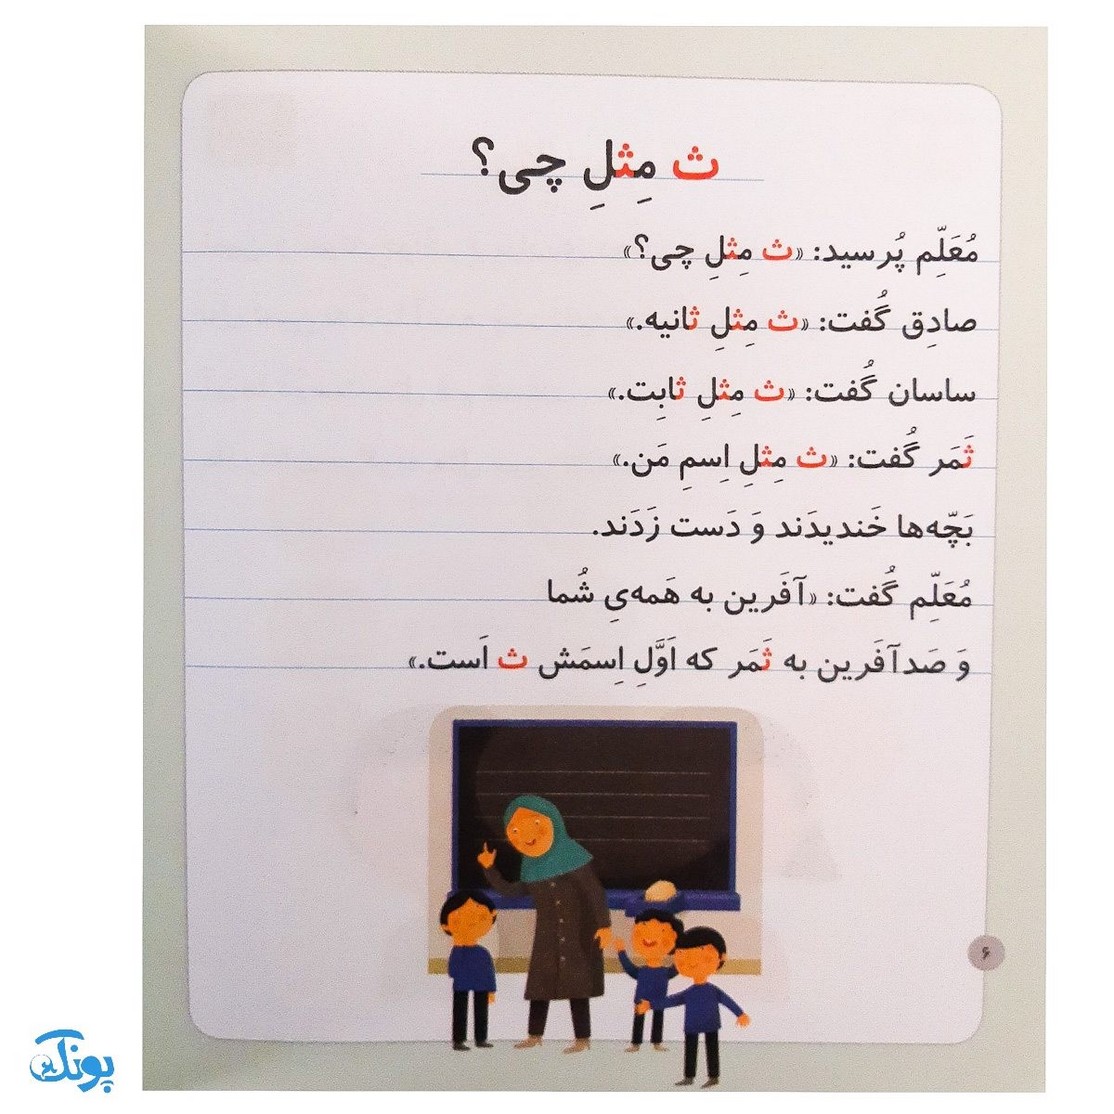 ث مِثلِ چی؟
مُعَلِّم پُرسید: «ث مِثلِ چی؟»
صادِق گُفت: «ث مِثلِ ثانیه.»
ساسان گُفت: «ث مِثلِ ثابِت.»
ثَمَر گُفت: «ث مِثلِ اِسمِ مَن.»
بَچّه‌ها خَندیدَند وَ دَست زَدَند.
مُعَلِّم گُفت: «آفَرین به هَمه‌یِ شُما
وَ صَدآفَرین به ثَمَر که اَوَّلِ اِسمَش ث اَست.»
۶
پونک